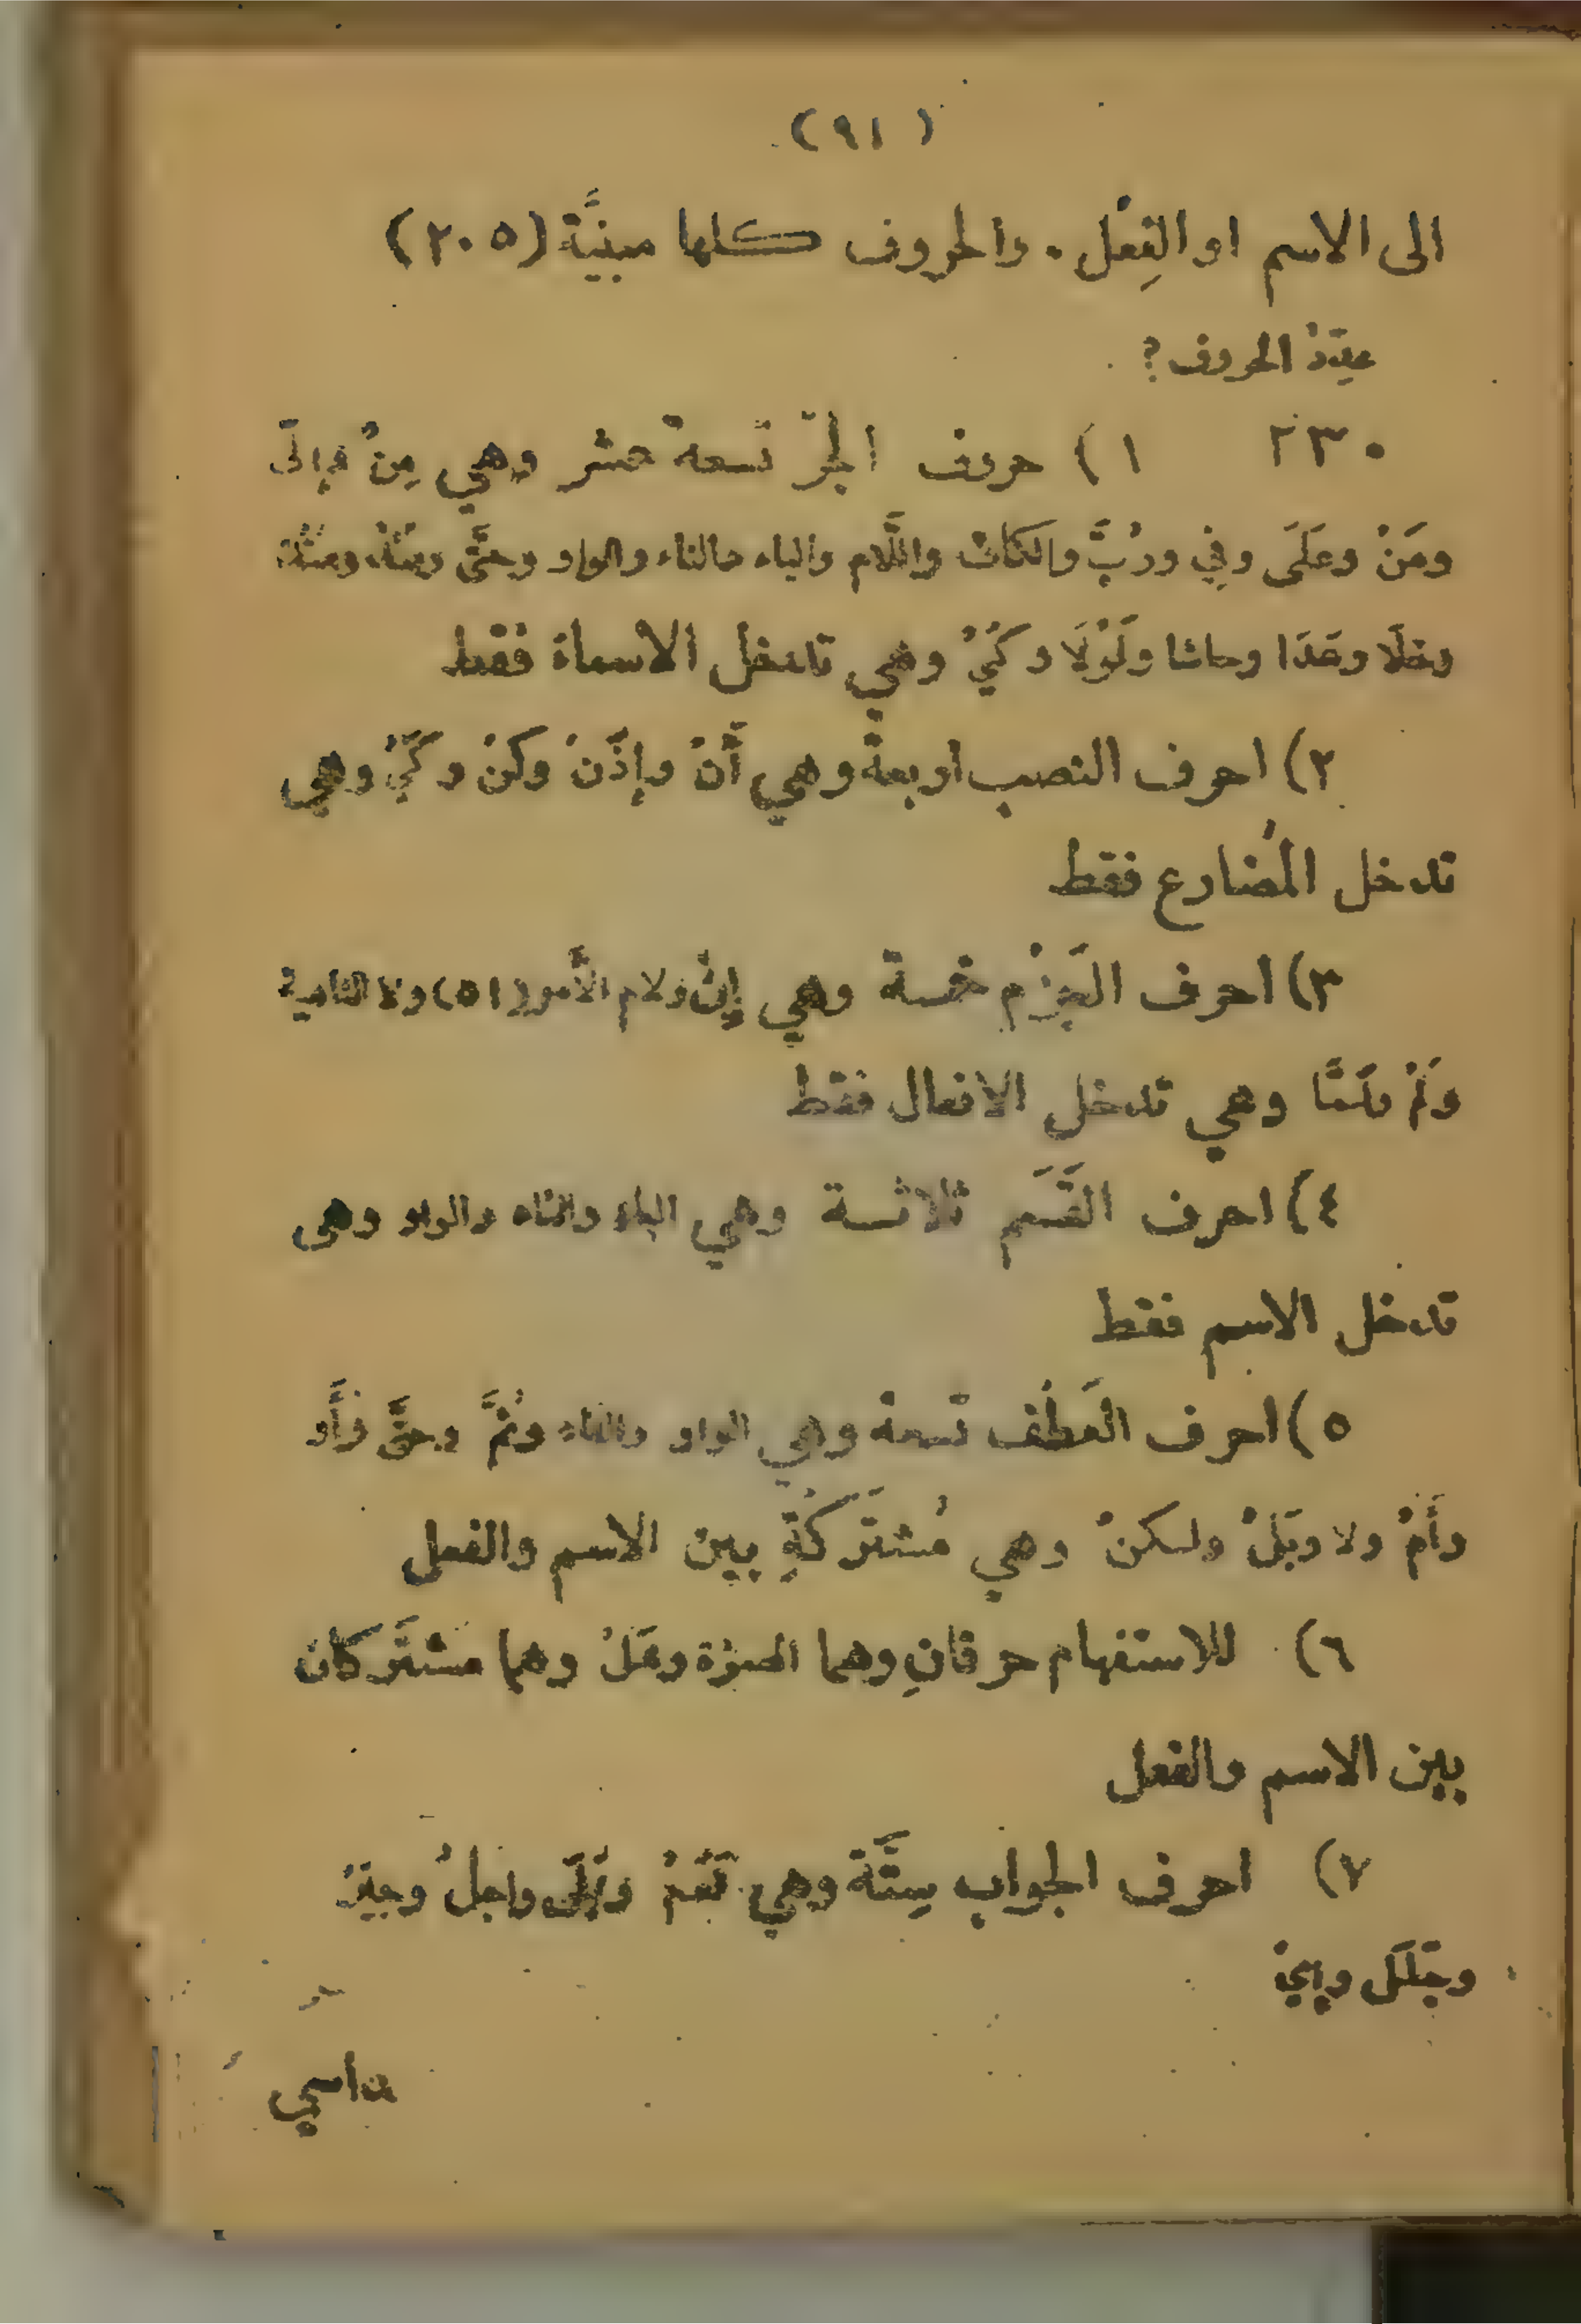 (٩١)
الى الاسم او الفِعْل . والحروف كلها مبنيَّة (٢٠٥)
عِدَّةُ الحروف ?
٢٣٠ ١) حروف الجرّ تسعةَ عشر وهي مِنْ وإِلَى
وعَنْ وعَلَى وفِي ورُبَّ والكاف واللَّام والباء والتاء والواو وحتَّى ومُذْ ومُنْذُ
وخَلَا وعَدَا وحاشا ولَوْلَا وكَيْ وهي تدخل الاسماءَ فقط
٢) احرف النصب اربعةٌ وهي أَنْ وإِذَنْ ولَنْ وكَيْ وهي
تدخل المُضارع فقط
٣) احرف الجَزْم خمسة وهي إِنْ ولام الأَمر (٥١) ولا الناهية
ولَمْ ولَمَّا وهي تدخل الافعال فقط
٤) احرف القَسَم ثلاثة وهي الباء والتاء والواو وهي
تدخل الاسم فقط
٥) احرف العَطْف تسعة وهي الواو والفاء وثُمَّ وحتَّى وأَو
وأَمْ ولا وبَلْ ولكنْ وهي مُشتَرَكَةٌ بين الاسم والفعل
٦) للاستفهام حرفانِ وهما الهمزة وهَلْ وهما مشتَركان
بين الاسم والفعل
٧) احرف الجواب سِتَّة وهي نَعَمْ وبَلَى واجلْ وجَيْرِ
وجَلَل وإِيْ